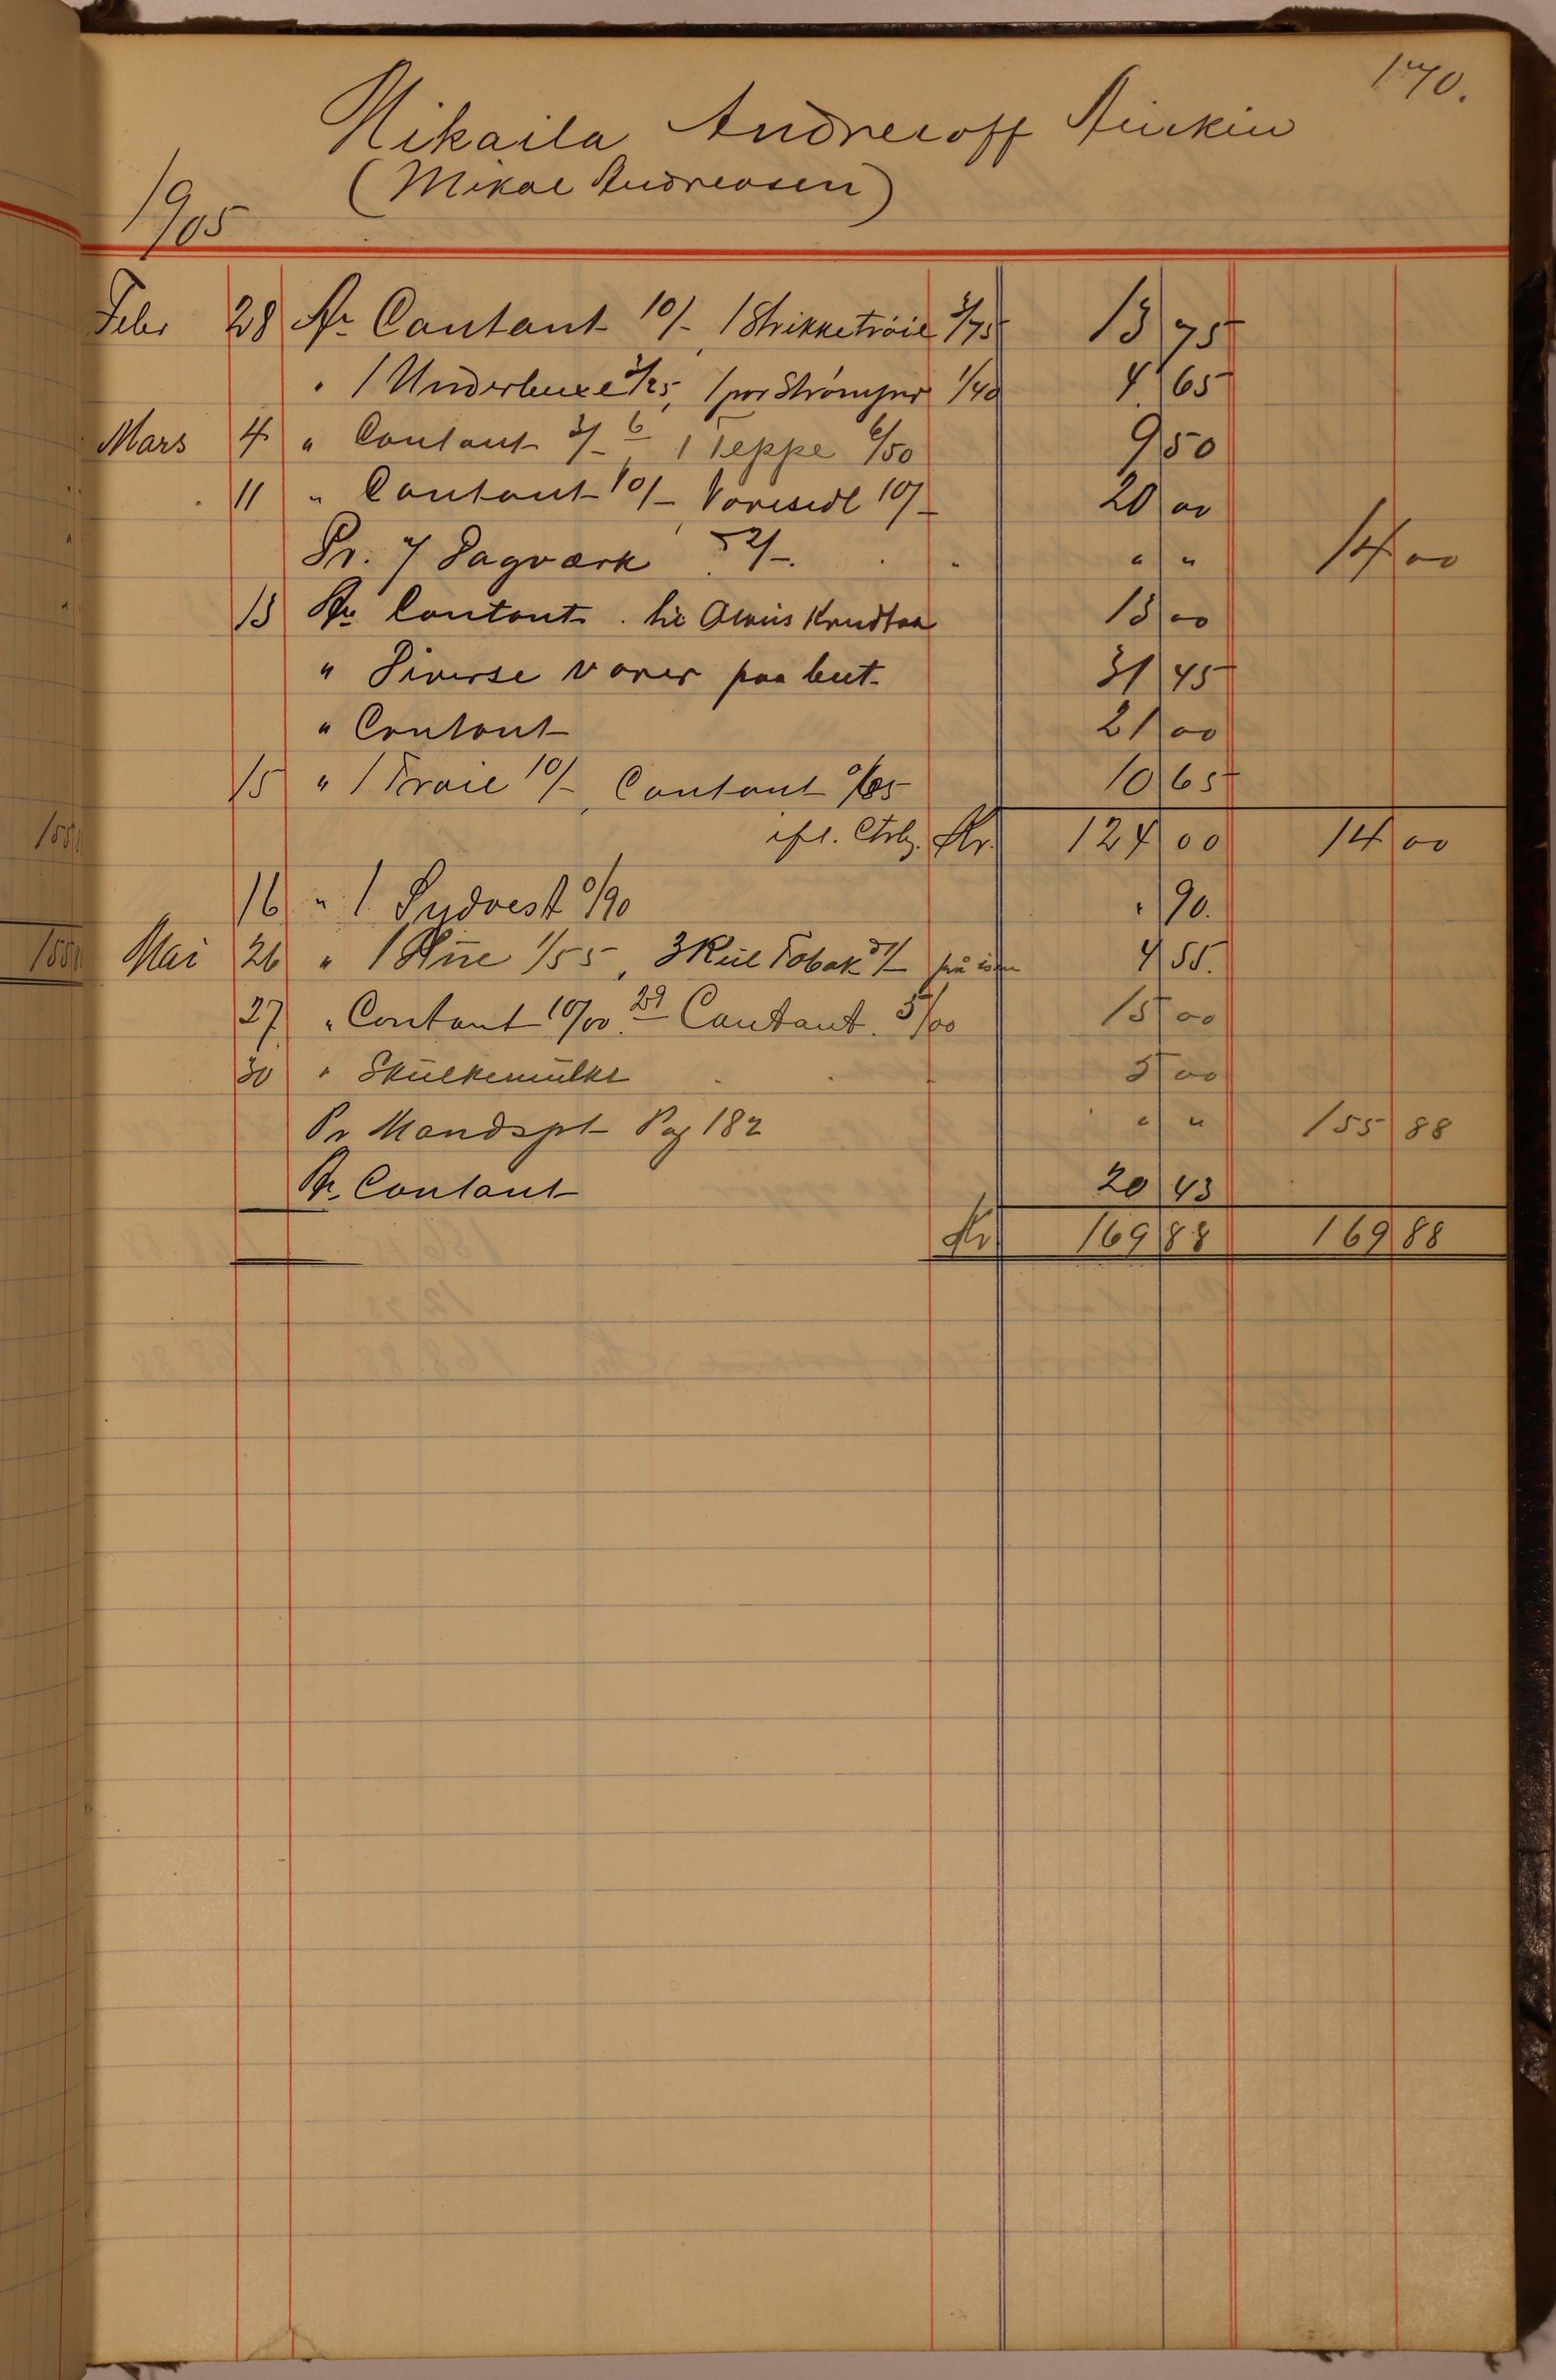 170.
Nikaila Andrecoff
(Mikal Andreasen)
1905
Febr 28 An Contant 10/- 1 Strikketrøie 3/75 13 75
" 1 Underbuxe 3/25, 1 par Strömper 1/40 4 65
Mars 4 " Contant 3/- 6 1 Teppe 6/50 9 50
11 " Contant 10/- Varesedl 10/- 20 00
Pr. 7 Dagværk 2/- " " 14 00
13 An Contant til 13 00
" Diverse varer paa 31 45
" Contant 21 00
15 " 1 Trøie 10/-, Contant 0/65 10 65
Kr. 124 00 14 00
16 " 1 Sydvest 0/90 " 90.
Mai 26 " 1 Hue 1/55, 3 Tobak 3/- 4 55.
27 " Contant 10/00. 29 Contant. 5/00 15 00
30 " 5 00
Pr Mandspt Pag 182 " " 155 88
An Contant 20 43
Kr 169 88 169 88